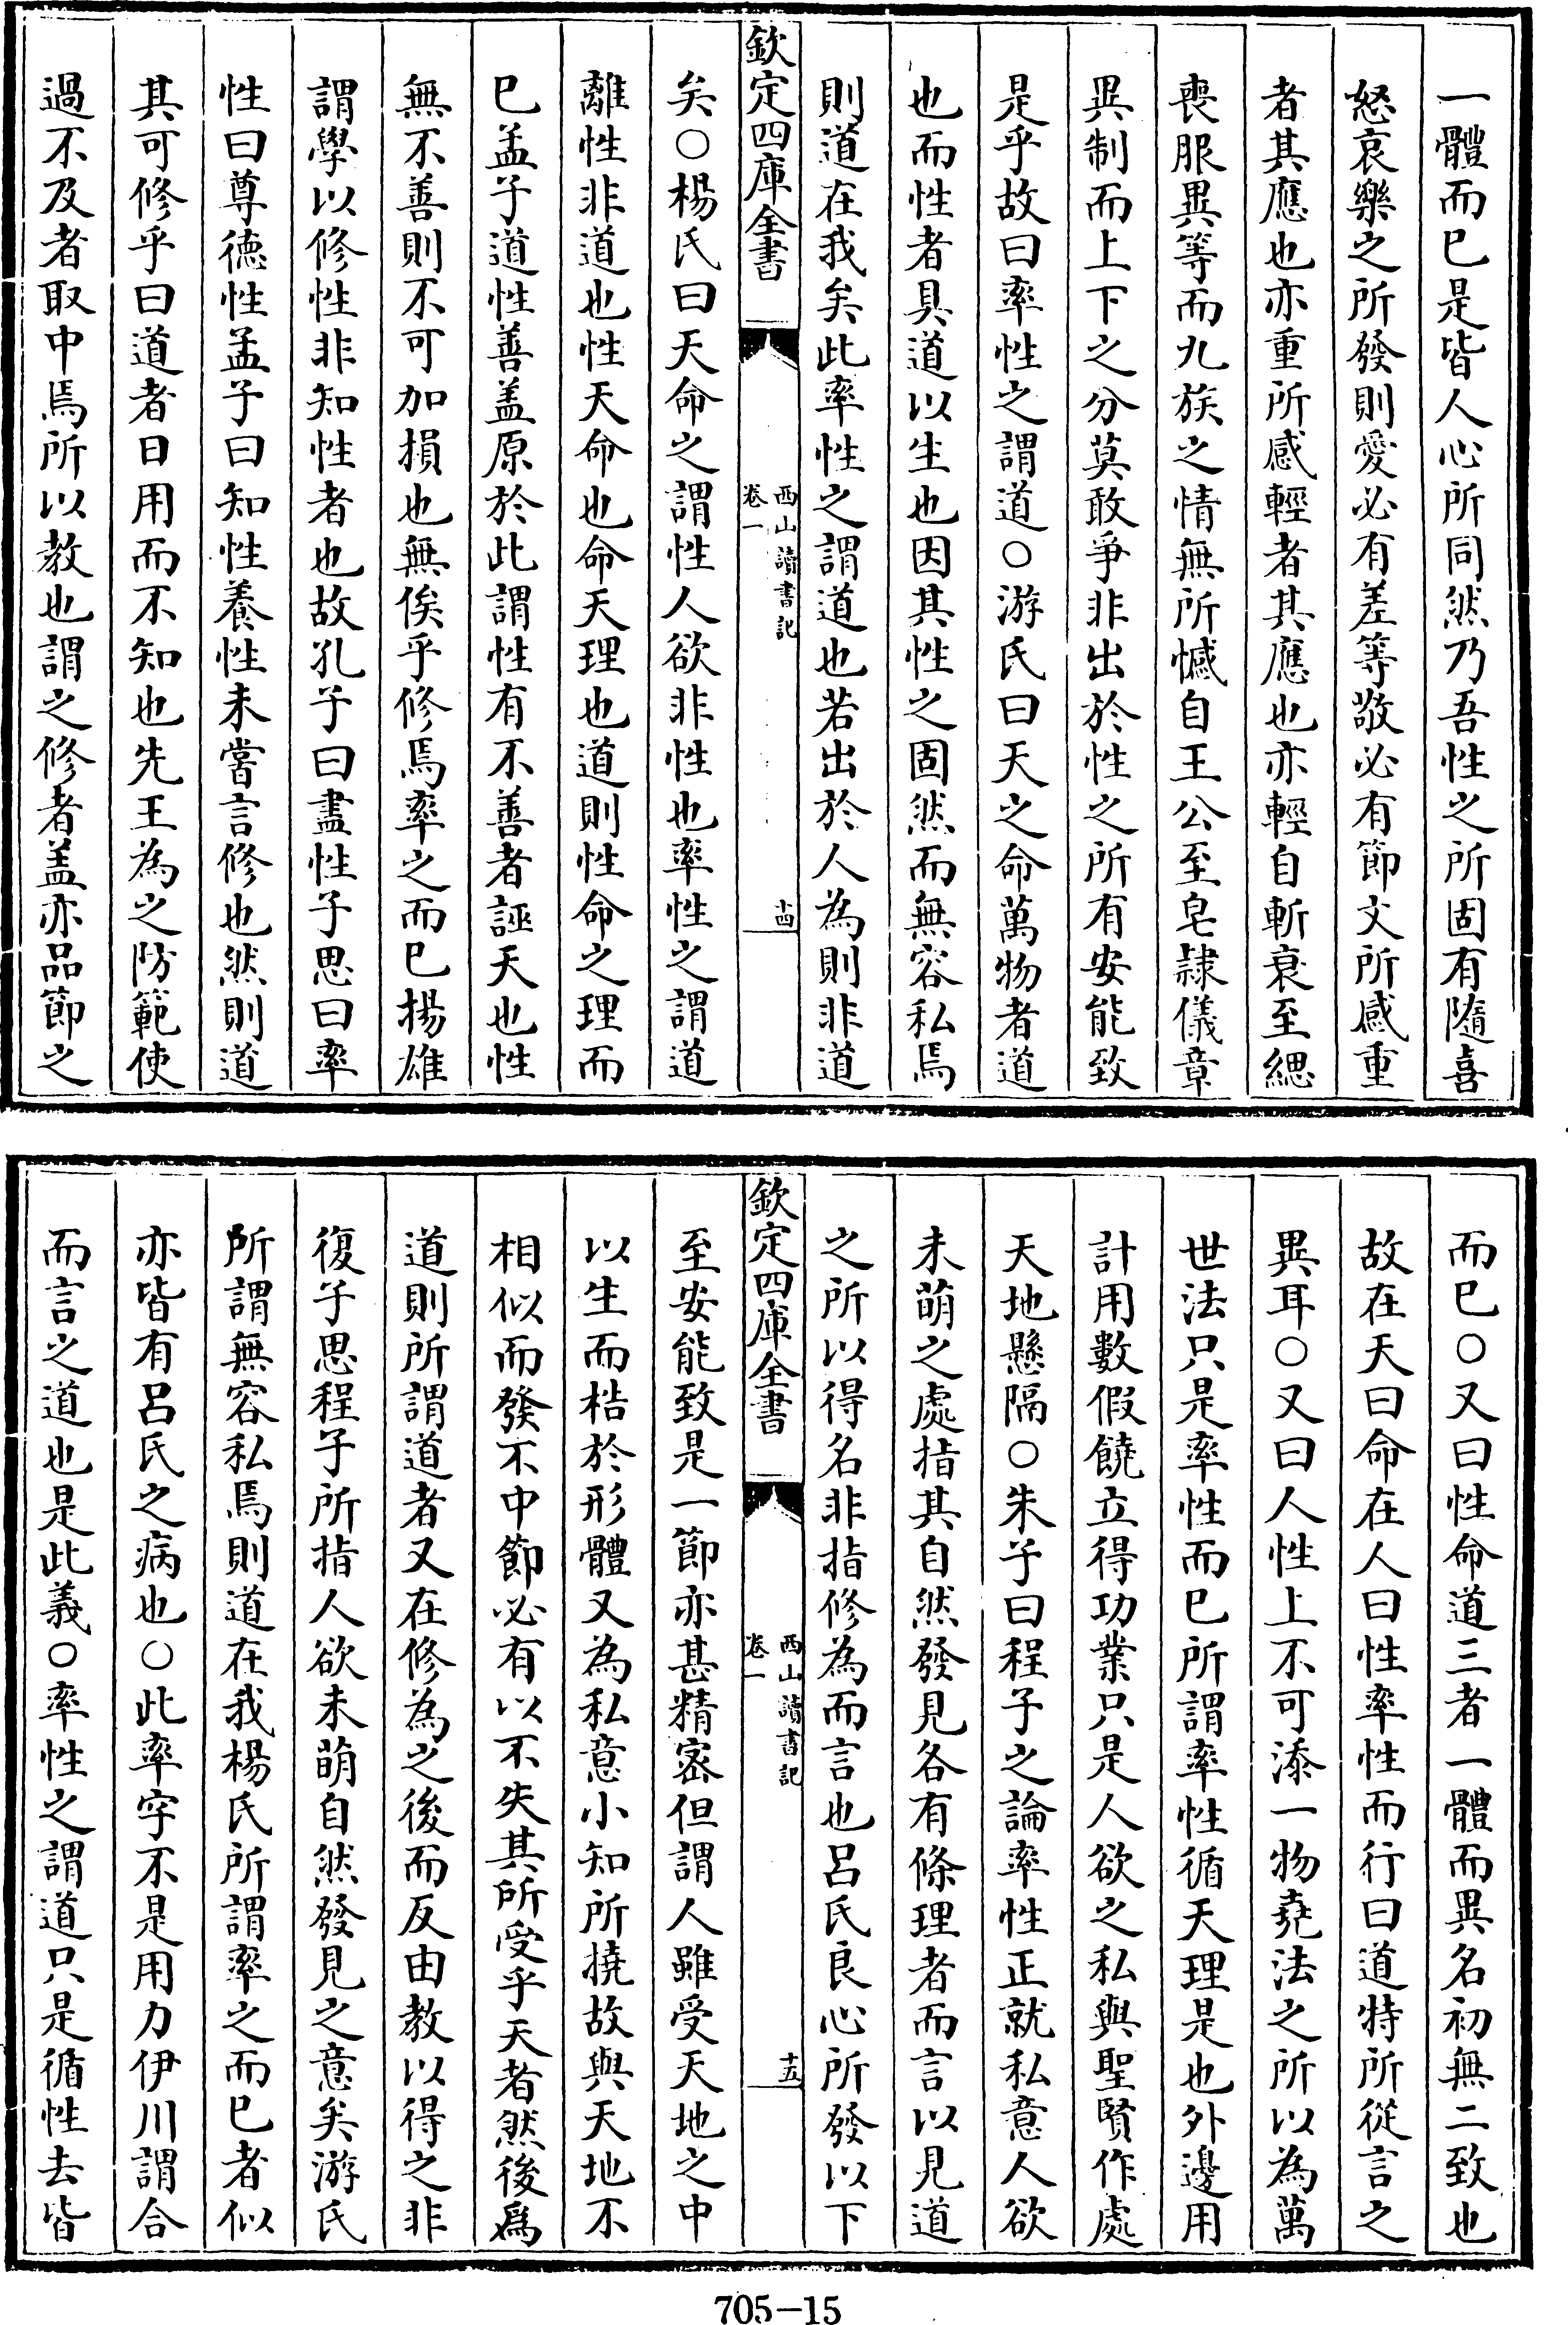 一體而已是皆人心所同然乃吾性之所固有隨喜
怒哀樂之所發則愛必有差等敬必有節文所感重
者其應也亦重所感輕者其應也亦輕自斬衰至緦
喪服異等而九族之情無所憾自王公至皂隸儀章
異制而上下之分莫敢爭非出於性之所有安能致
是乎故曰率性之謂道○游氏曰天之命萬物者道
也而性者具道以生也因其性之固然而無容私焉
則道在我矣此率性之謂道也若出於人為則非道
欽定四庫全書
西山讀書記
卷一
十四
矣○楊氏曰天命之謂性人欲非性也率性之謂道
離性非道也性天命也命天理也道則性命之理而
已孟子道性善盖原於此謂性有不善者誣天也性
無不善則不可加損也無俟乎修焉率之而已揚雄
謂學以修性非知性者也故孔子曰盡性子思曰率
性曰尊德性孟子曰知性養性未嘗言修也然則道
其可修乎曰道者日用而不知也先王為之防範使
過不及者取中焉所以教也謂之修者盖亦品節之
而已○又曰性命道三者一體而異名初無二致也
故在天曰命在人曰性率性而行曰道特所從言之
異耳○又曰人性上不可添一物堯法之所以為萬
世法只是率性而已所謂率性循天理是也外邊用
計用數假饒立得功業只是人欲之私與聖賢作處
天地懸隔○朱子曰程子之論率性正就私意人欲
未萌之處指其自然發見各有條理者而言以見道
之所以得名非指修為而言也呂氏良心所發以下
欽定四庫全書
西山讀書記
卷一
十五
至安能致是一節亦甚精密但謂人雖受天地之中
以生而梏於形體又為私意小知所撓故與天地不
相似而發不中節必有以不失其所受乎天者然後爲
道則所謂道者又在修為之後而反由教以得之非
復子思程子所指人欲未萌自然發見之意矣游氏
所謂無容私焉則道在我楊氏所謂率之而已者似
亦皆有呂氏之病也○此率字不是用力伊川謂合
而言之道也是此義○率性之謂道只是循性去皆
705-15